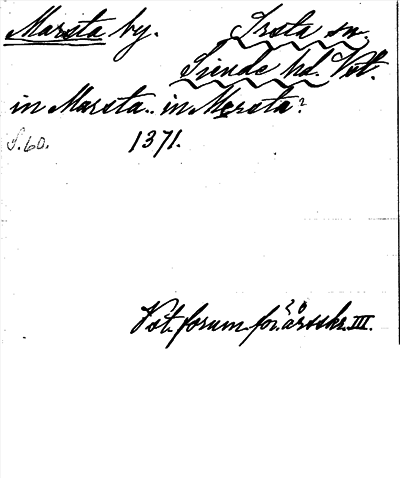 Marsta by. Irsta sn.
Siende hd. Vstl.
in Marsta.. in Mersta?
S. 60. 1371.
Vst. forum. för. årsskr. III.